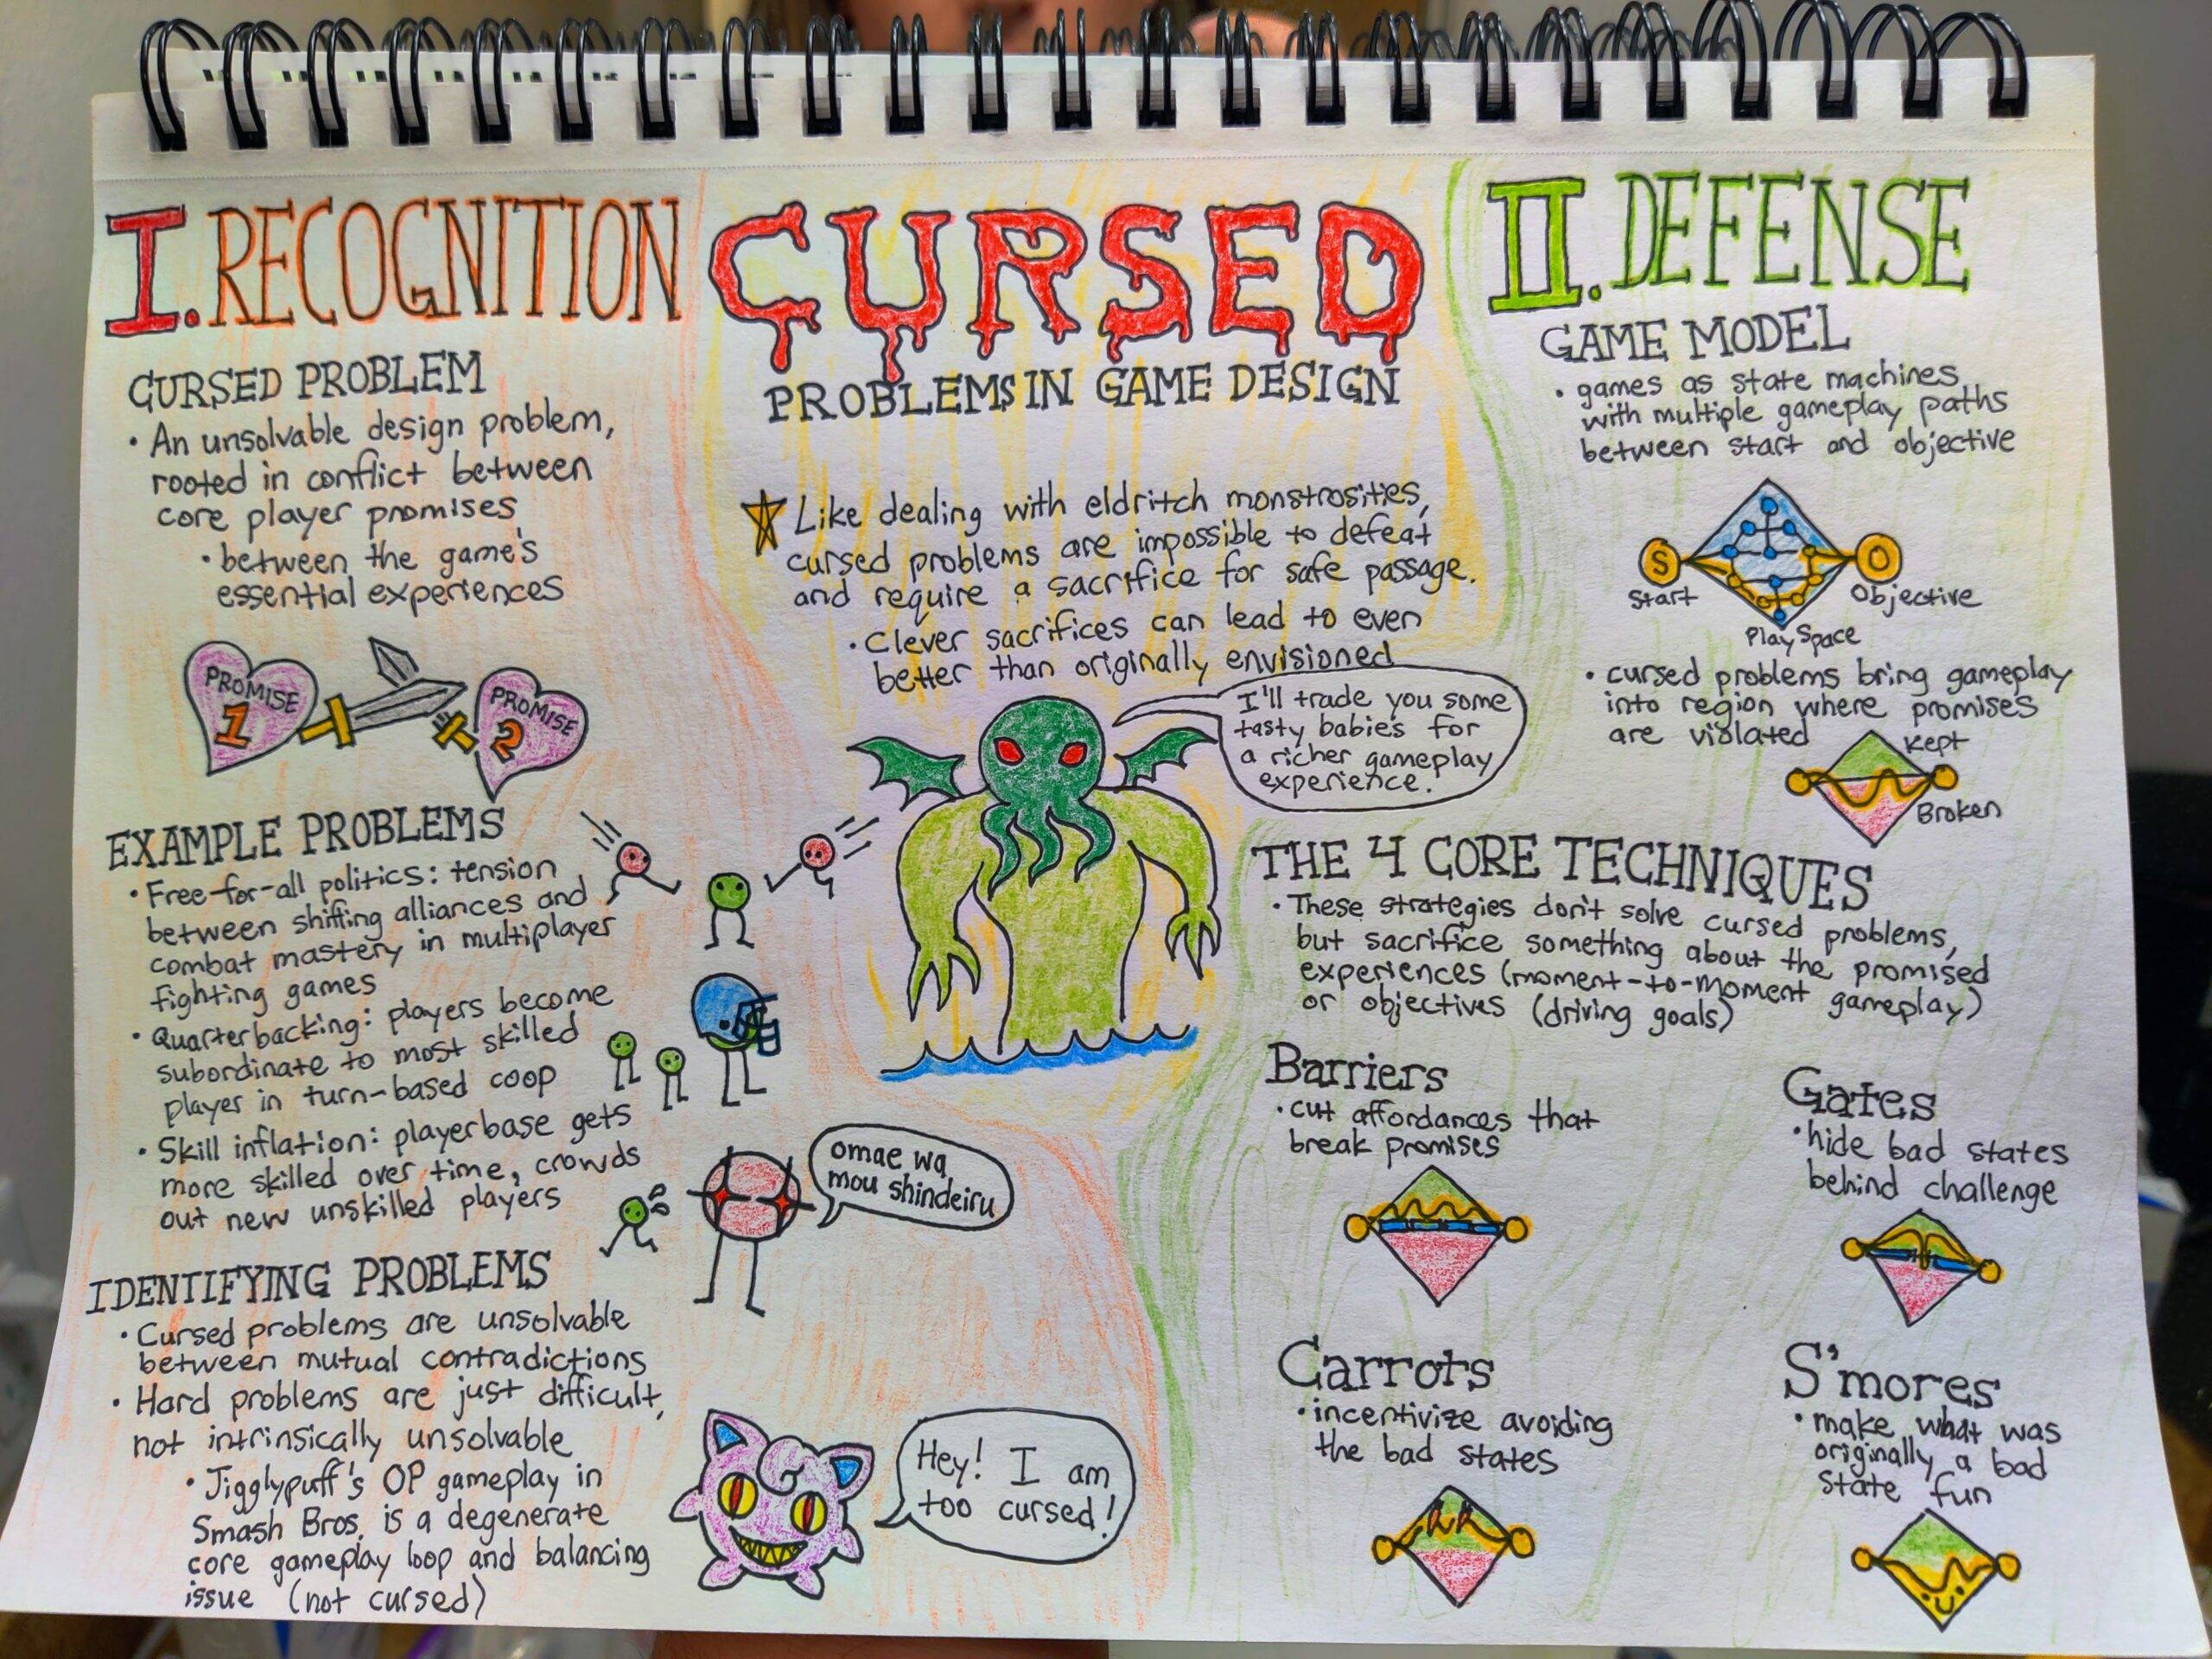 I. RECOGNITION
CURSED PROBLEM
• An unsolvable design problem,
rooted in conflict between
core player promises
• between the game's
essential experiences
PROMISE
1
PROMISE
2
EXAMPLE PROBLEMS
• Free-for-all politics: tension
between shifting alliances and
combat mastery in multiplayer
fighting games
• Quarterbacking: players become
subordinate to most skilled
player in turn-based coop
• Skill inflation: playerbase gets
more skilled over time, crowds
out new unskilled players
omae wa
mou shindeiru
IDENTIFYING PROBLEMS
• Cursed problems are unsolvable
between mutual contradictions
• Hard problems are just difficult,
not intrinsically unsolvable
• Jigglypuff's OP gameplay in
Smash Bros. is a degenerate
core gameplay loop and balancing
issue (not cursed)
Hey! I am
too cursed!
CURSED
PROBLEMS IN GAME DESIGN
Like dealing with eldritch monstrosities,
cursed problems are impossible to defeat
and require a sacrifice for safe passage.
• Clever sacrifices can lead to even
better than originally envisioned
I'll trade you some
tasty babies for
a richer gameplay
experience.
II. DEFENSE
GAME MODEL
• games as state machines
with multiple gameplay paths
between start and objective
S
O
Start
Objective
Play Space
• cursed problems bring gameplay
into region where promises
are violated
Kept
Broken
THE 4 CORE TECHNIQUES
• These strategies don't solve cursed problems,
but sacrifice something about the promised
experiences (moment-to-moment gameplay)
or objectives (driving goals)
Barriers
• cut affordances that
break promises
Gates
• hide bad states
behind challenge
Carrots
• incentivize avoiding
the bad states
S'mores
• make what was
originally a bad
state fun